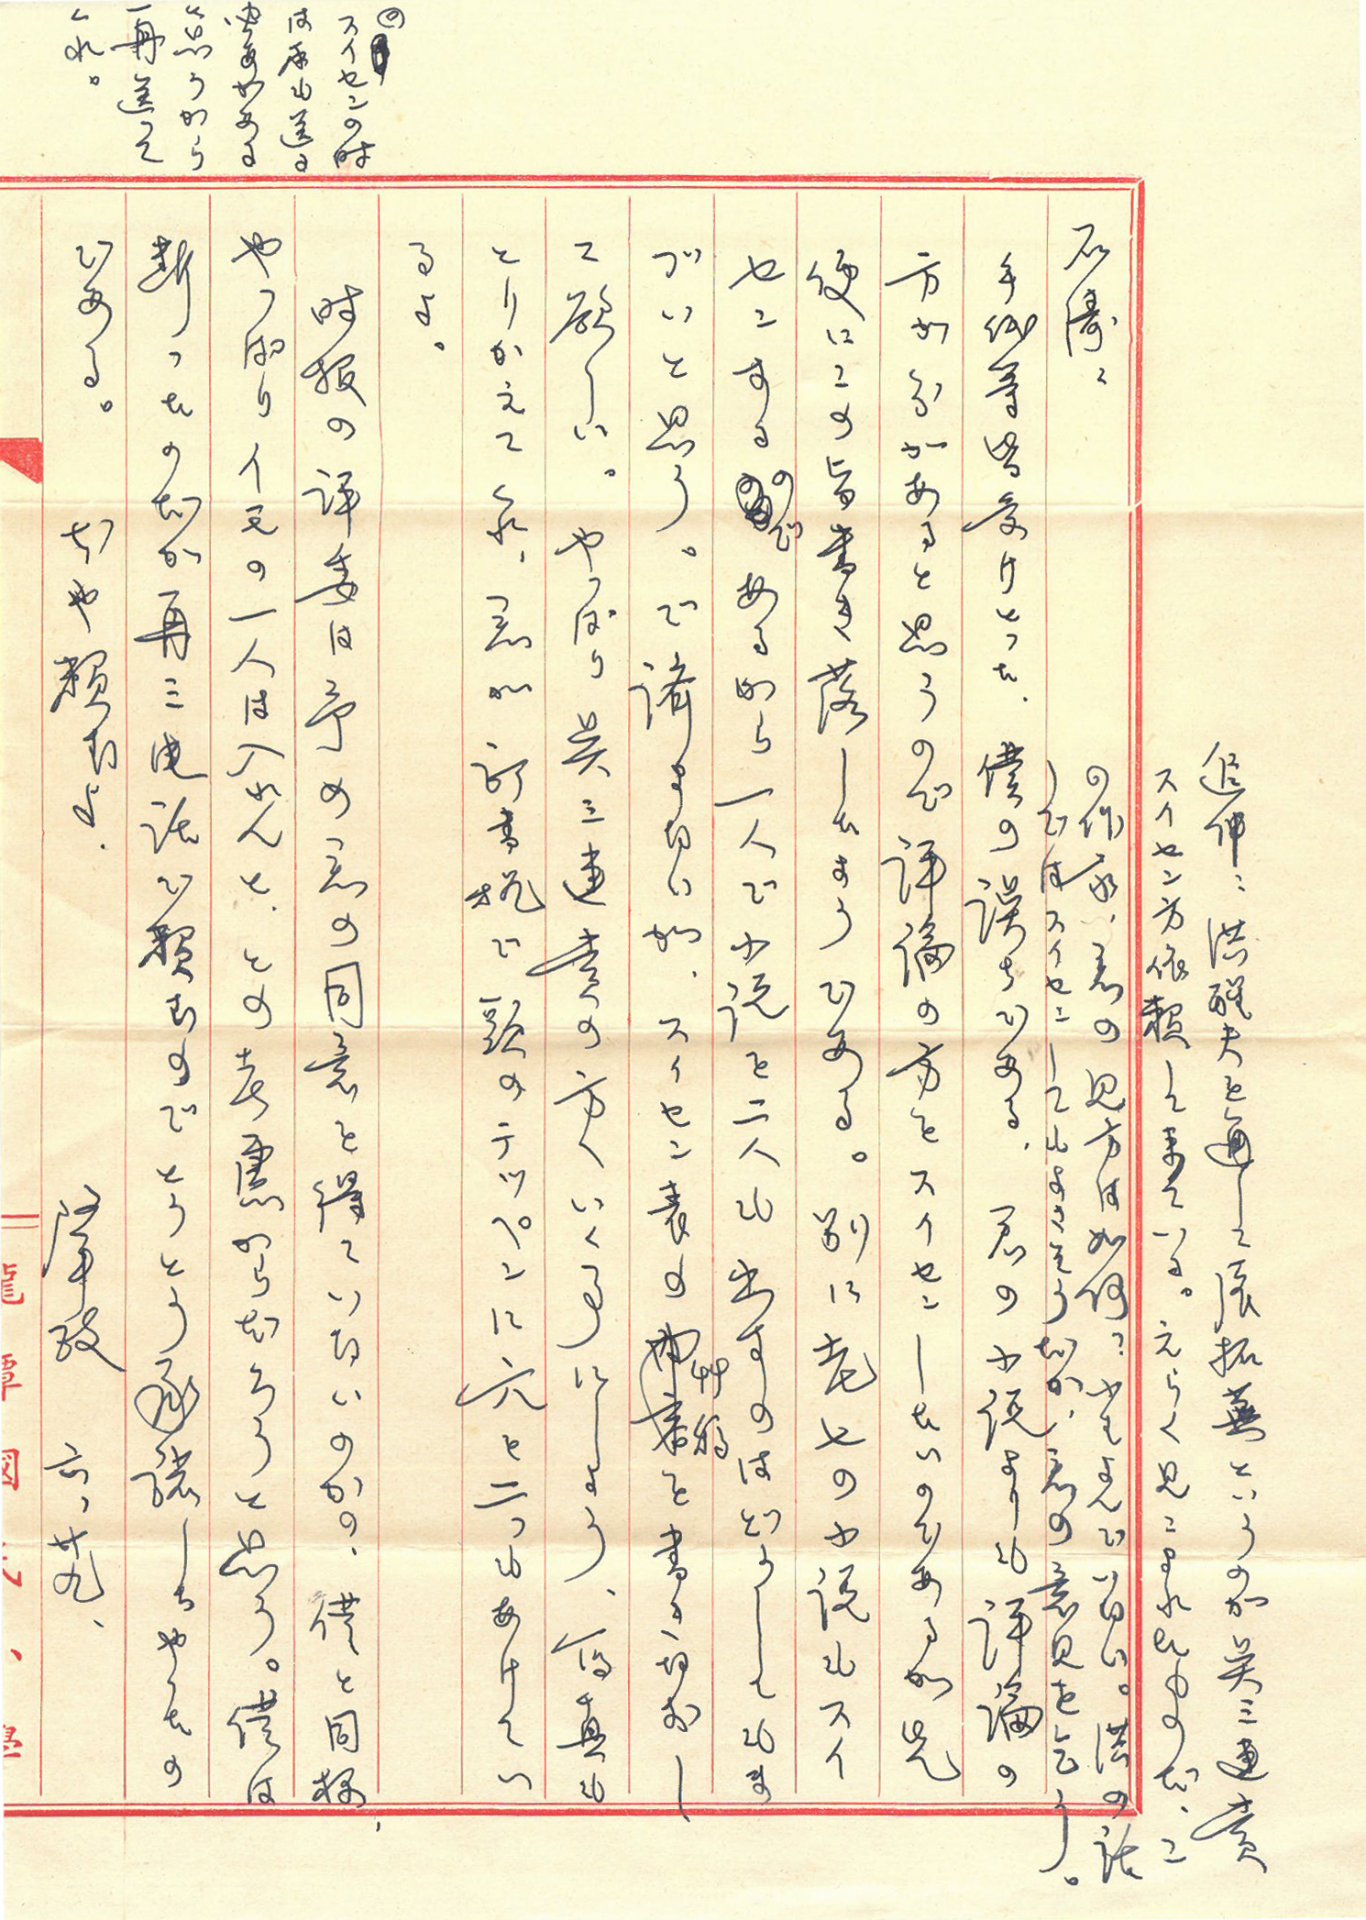 追伸：洪醒夫を通して張拓蕪というのが吳三連賞
スイセン方依頼して来ている。えらく見こまれたものだ、こ
の作家、君の見方は如何？少くも読んでいない。洪の話
しではスイセンしてもよさそうだが、君の意見を乞う。
石濤：
手紙等皆受けとった、僕の誤ちである、君の小説よりも評論の
方が分があると思うので評論の方をスイセンしたいのであるが先
便にこの旨書き落したようである。別に老七の小説もスイ
センするのであるから一人で小説を二人も出すのはどうしてもま
づいと思う。で済まないが、スイセン表の件、稿を書きなおし
て欲しい。やっぱり吳三連賞の方へいく事にしよう、写真も
とりかえてくれ、君が評書攬で頭のテッペンに穴を二つもあけてい
るよ。
時报の評委は予め君の同意を得ていないのかの、僕と同様、
やっぱりイモの一人は入れんと、との考慮からだろうと思う。僕は
断ったのだが再三电話で頼むのでとうとう承諾しちやったの
である。　だや頼むよ、
肇政　六、廿九、
の
スイセンの時
は原も送る
必要がある
と思うから
一再送って
くれ。
龍潭國民小學